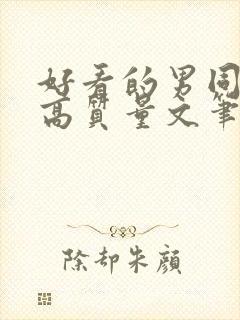 好看的男同
高质量文笔
除却朱颜